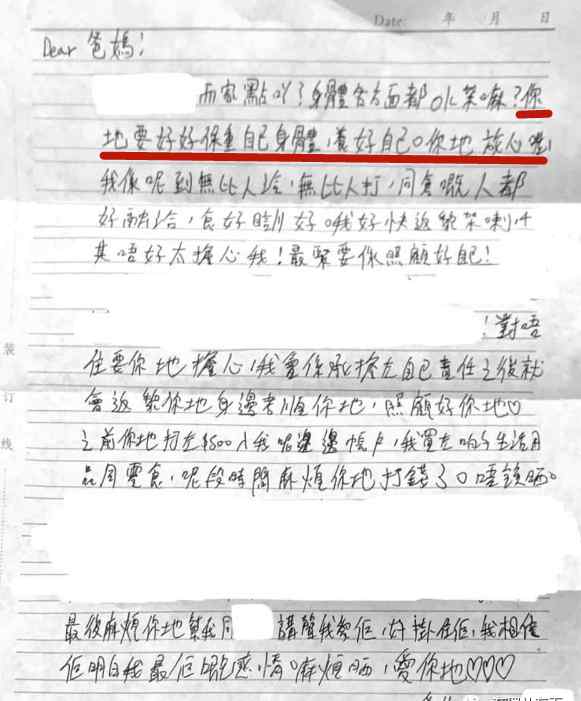 Date: 年 月 日
Dear 爸媽!
而家點吖?身體各方面都ok架嘛?你
地要好好保重自己身體,養好自己。你地放心嘅,
我係呢到無比人蝦,無比人打,同倉嘅人都
好融洽,食好瞓好。我好快返黎架喇!
其唔好太擔心我!最緊要你照顧好自己!
!對唔
住要你地擔心,我會係承擔左自己責任之後就
會返黎你地身邊孝順你地,照顧好你地♡
之前你地打左$500入我呢邊邊帳戶,我買左啲生活用
品同零食,呢段時間麻煩你地打錢了。唔該晒。
最後麻煩你地幫我同 講聲我愛佢,好掛住佢,我相信
佢明白我最佢嘅感情。麻煩晒,愛你地♡♡♡
装
订
线